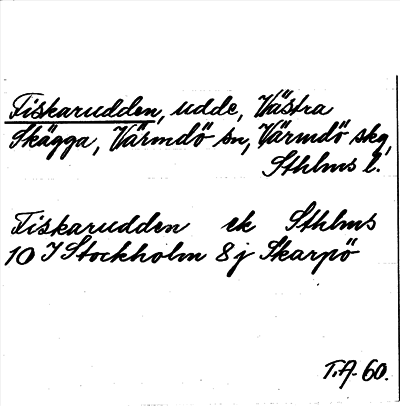 Fiskarudden, udde, Västra
Skägga, Värmdö sn, Värmdö skg,
Sthlms l.
Fiskarudden ek Sthlms
10 I Stockholm 8 j Skarpö
T.A. 60.